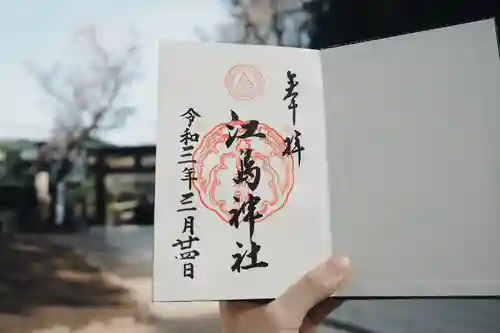 奉拝
江島神社
令和三年三月廿四日